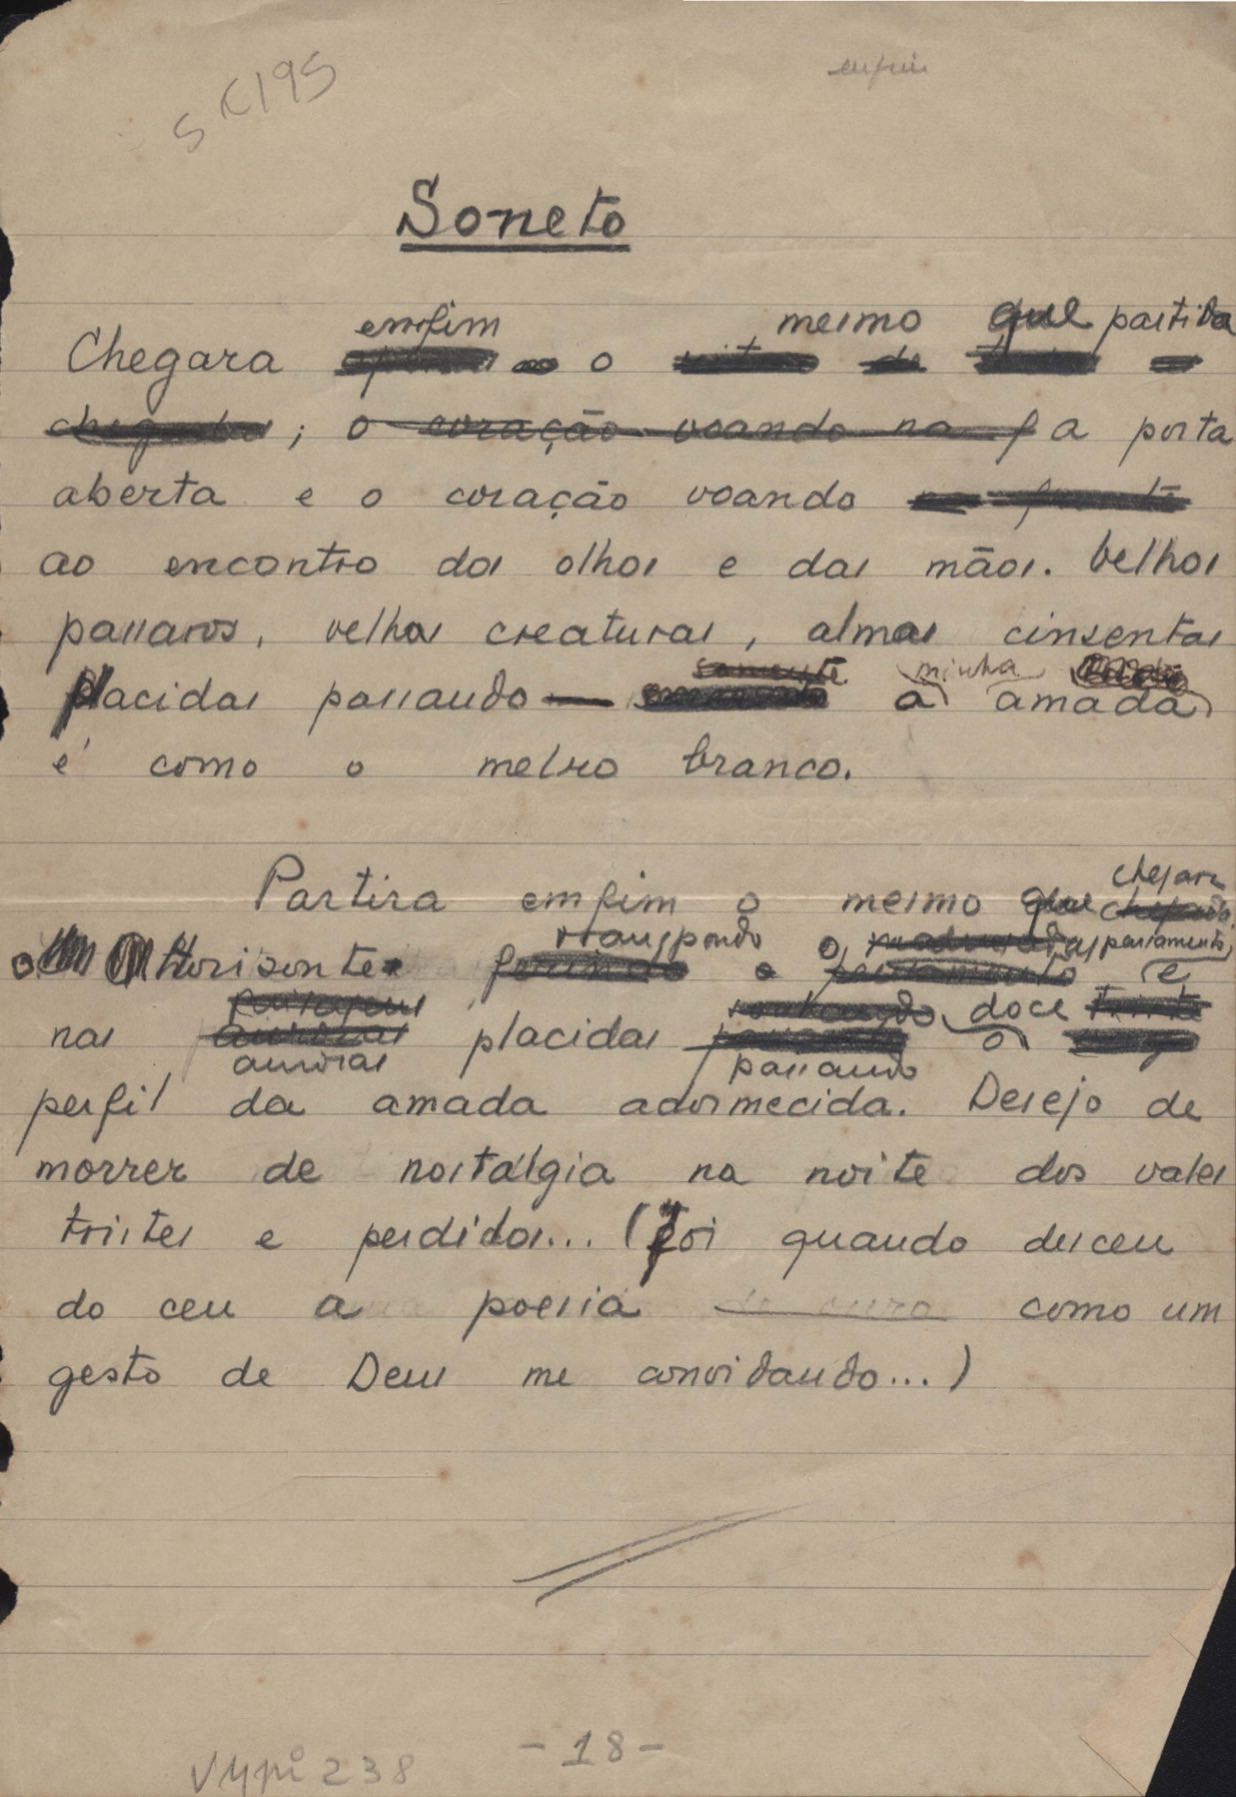 S K195
enfim
Soneto
enfim mesmo que partida
Chegara o
; o coração voando na f a porta
aberta e o coração voando
ao encontro dos olhos e das mãos. Velhos
passaros, velhas creaturas, almas cinsentas
somente minha
placidas passando — a amada
é como o melro branco.
chegara
Partira emfim o mesmo que chegado
os pensamentos
o Horisonte e
paisagens doce triste
nas auroras placidas o
auroras passando
perfil da amada adormecida. Desejo de
morrer de nostalgia na noite dos vales
tristes e perdidos... (foi quando desceu
do ceu a poesia como um
gesto de Deus me convidando...)
- 18 -
VMpi 238